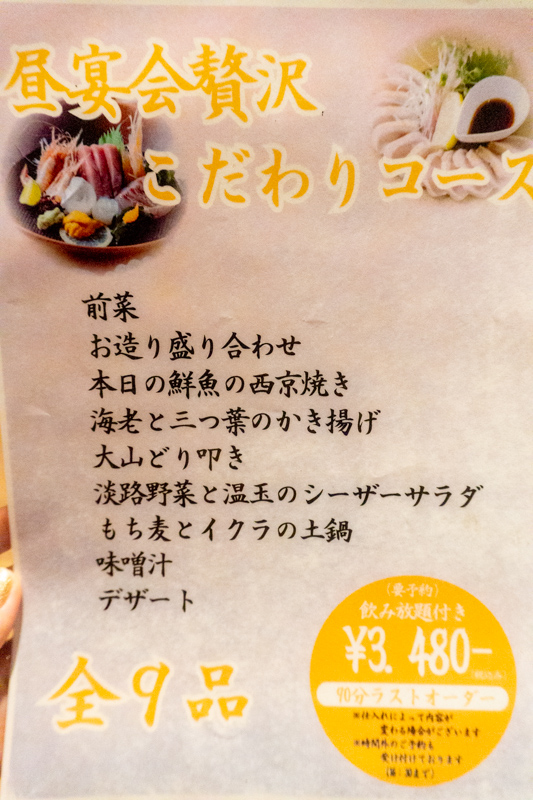 昼宴会贅沢
こだわりコース
前菜
お造り盛り合わせ
本日の鮮魚の西京焼き
海老と三つ葉のかき揚げ
大山どり叩き
淡路野菜と温玉のシーザーサラダ
もち麦とイクラの土鍋
味噌汁
デザート
全9品
(要予約)
飲み放題付き
¥3,480-
(税込み)
90分ラストオーダー
※仕入れによって内容が
変わる場合がございます
※時間外のご予約も
受け付けております